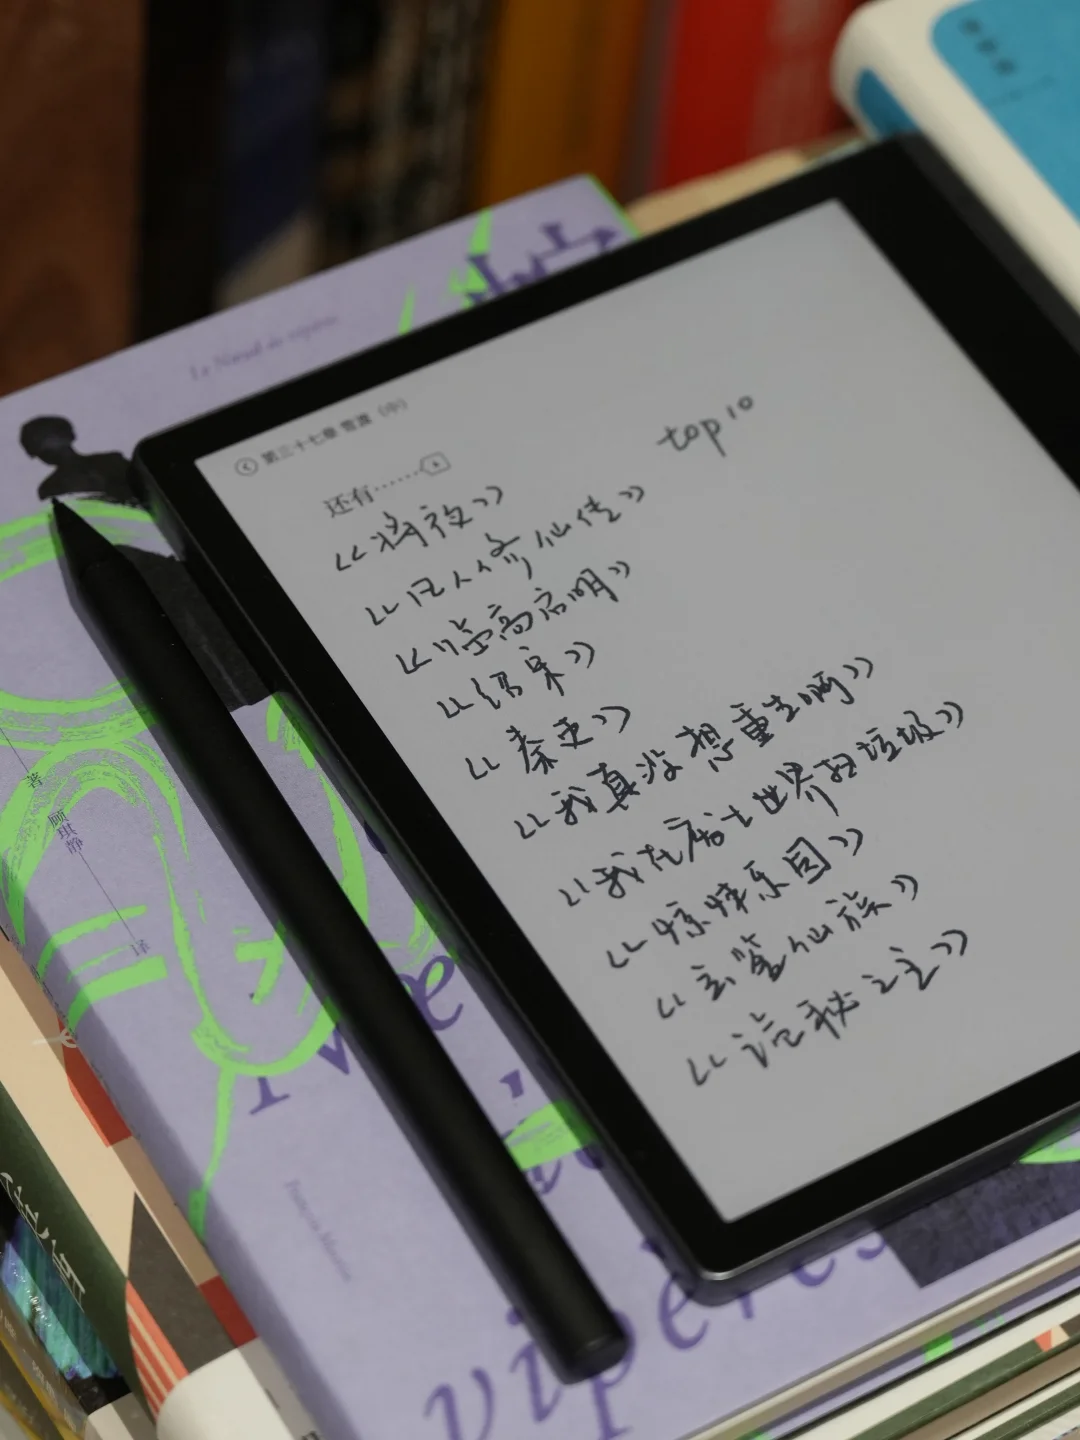 第三十七章 雪渡（中）
还有……
top 10
《将夜》
《凡人修仙传》
《临高启明》
《绍宋》
《秦吏》
《我真没想重生啊》
《我在废土世界扫垃圾》
《惊悚乐园》
《玄鉴仙族》
《诡秘之主》
Le Nœud de vipères
著
顾琪静
译
vipères